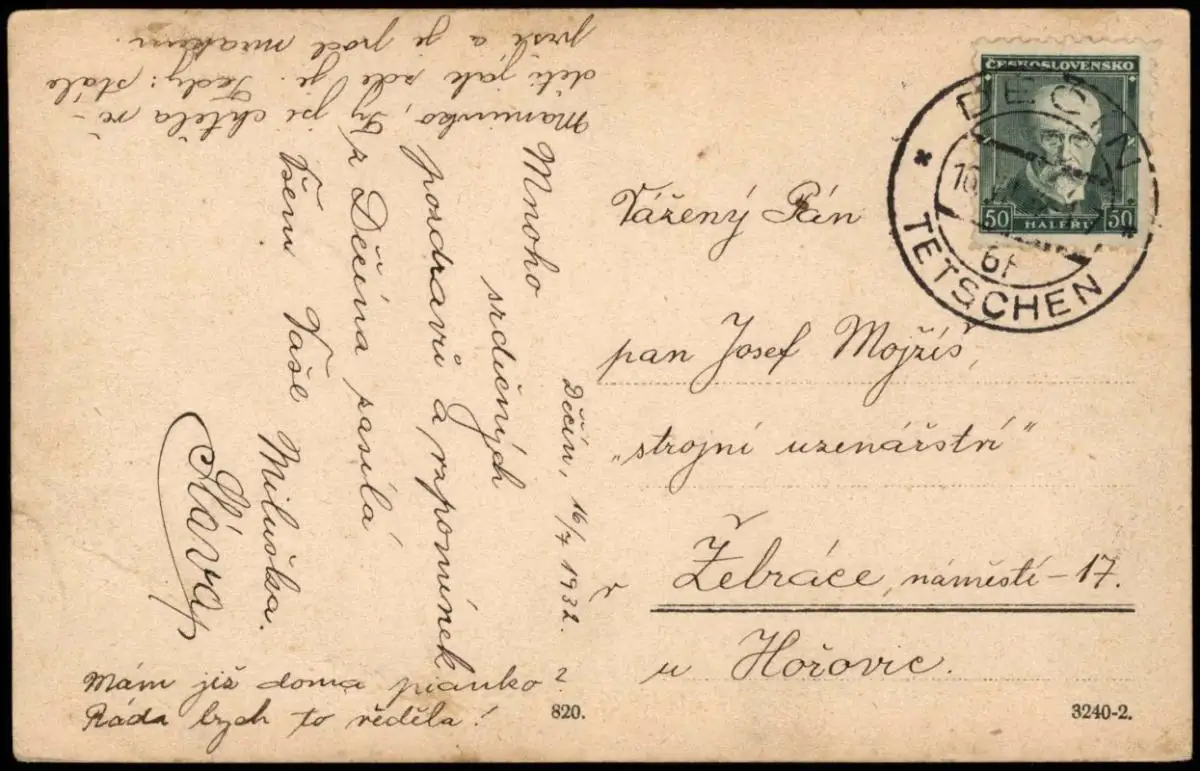 ČESKOSLOVENSKO
50 HALÉŘŮ 50
DĚČÍN
TETSCHEN
Děčín, 16/7 1932.
Mnoho
srdečných
pozdravů a vzpomínek
z Děčína zasílá
Všem Vaše Miluška.
Sláva
Maminko, Ty jsi chtěla vě-
děti jak zde je. Tedy: stále
prší a je pod mrakem.
Mám již doma pianko?
Ráda bych to věděla!
Vážený Pán
pan Josef Mojžíš,
„strojní uzenářství“
v Žebráce, náměstí - 17.
u Hořovic.
820.
3240-2.